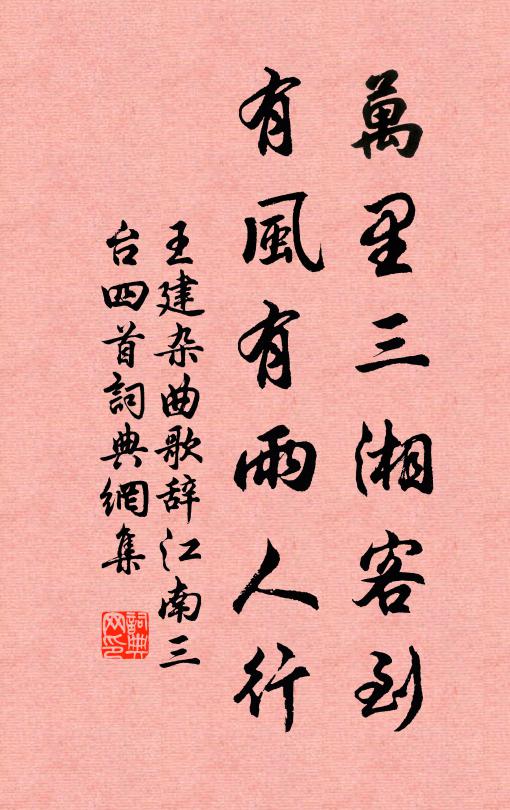 萬里三湘客到
有風有雨人行
王建杂曲歌辞江南三
台四首詞典網集
詞典網印